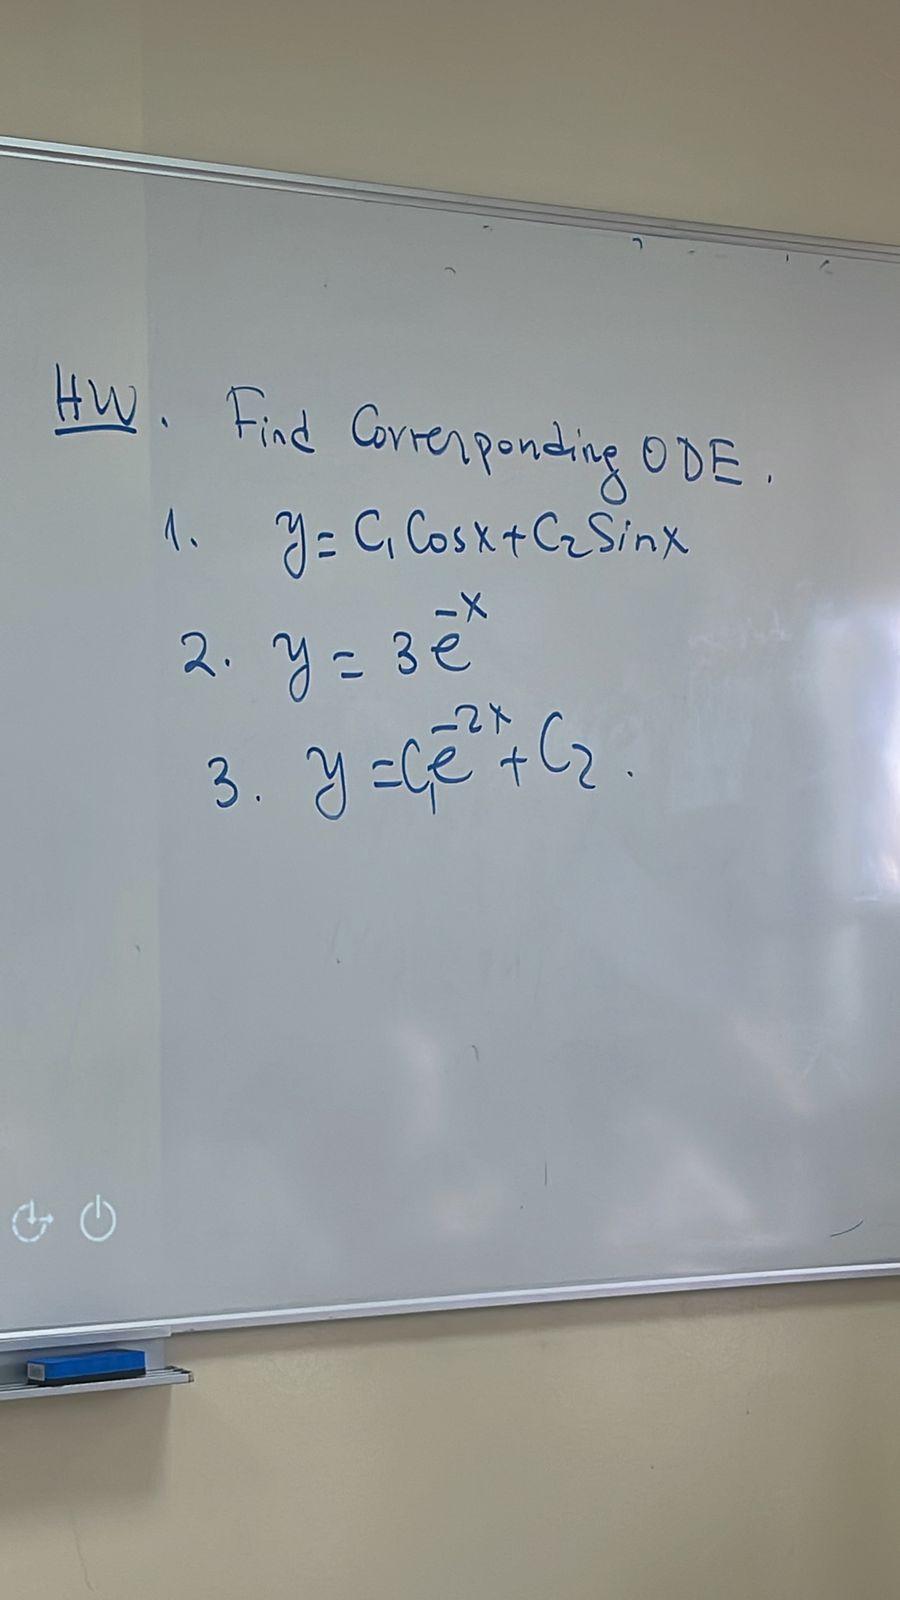 HW. Find Corresponding ODE.
1. y = C₁ Cosx + C₂ Sinx
2. y = 3e⁻ˣ
3. y = C₁e⁻²ˣ + C₂.